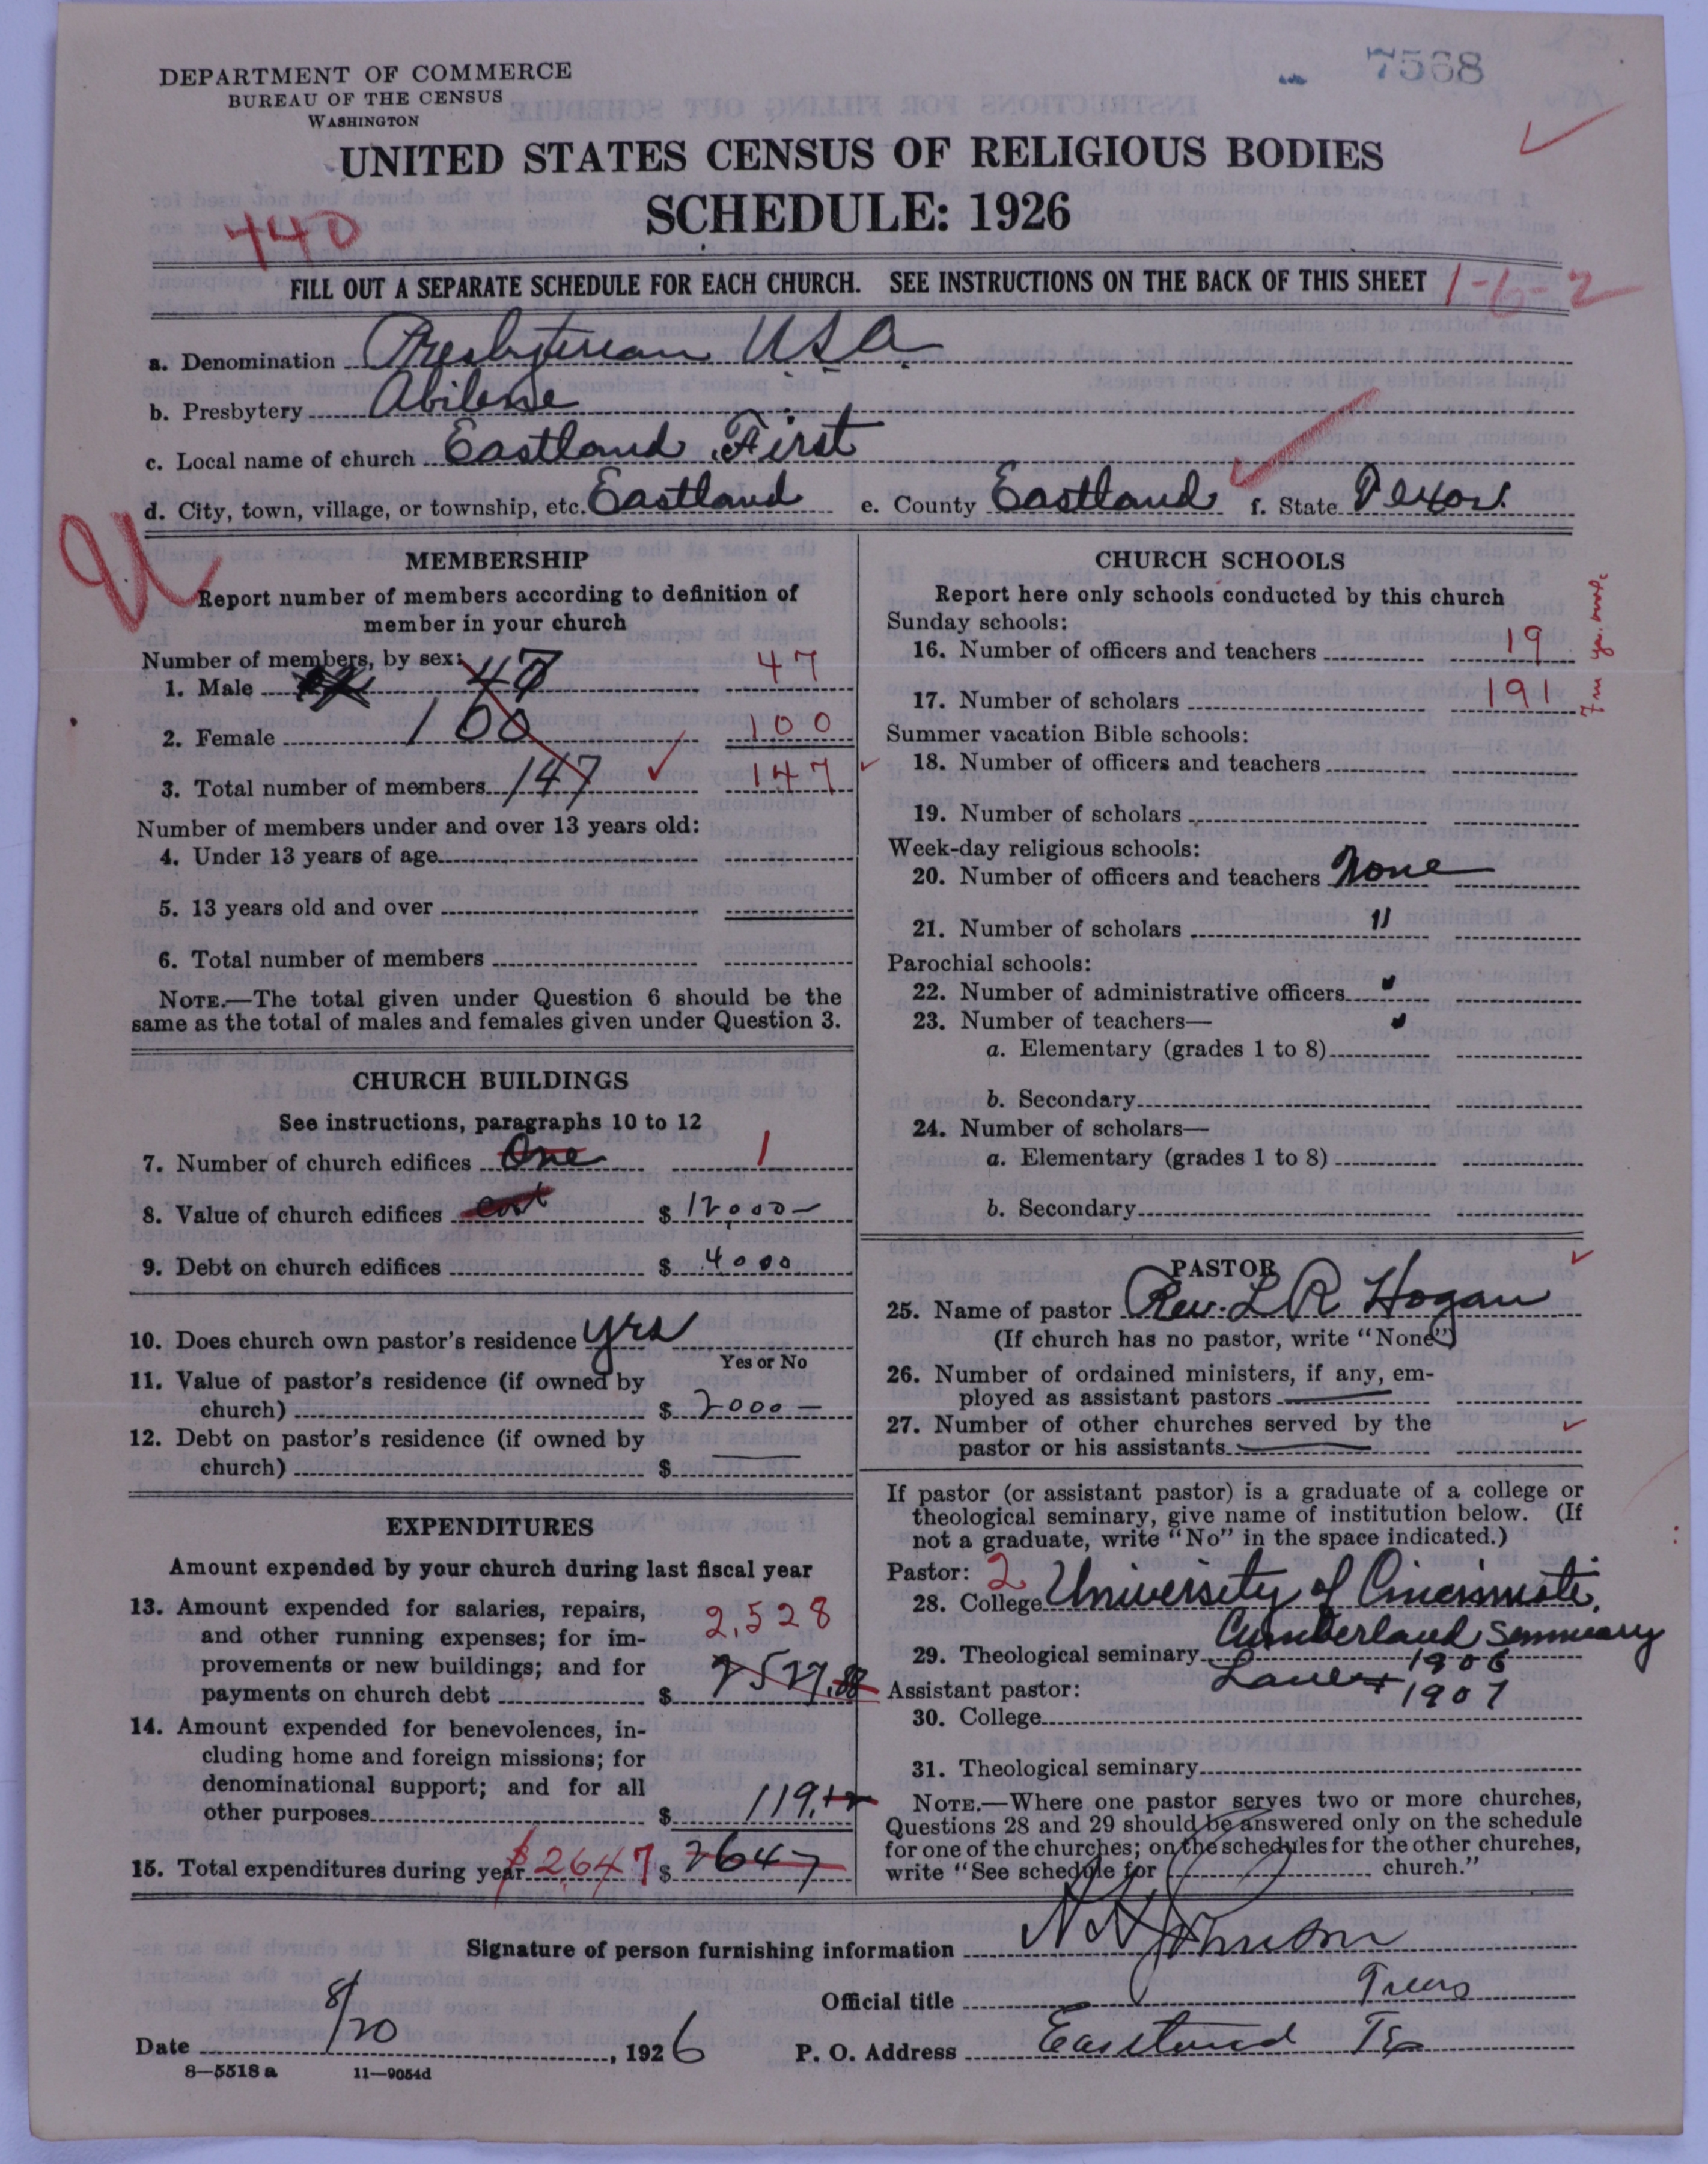 7568
DEPARTMENT OF COMMERCE
BUREAU OF THE CENSUS
WASHINGTON
UNITED STATES CENSUS OF RELIGIOUS BODIES
SCHEDULE: 1926
440
FILL OUT A SEPARATE SCHEDULE FOR EACH CHURCH. SEE INSTRUCTIONS ON THE BACK OF THIS SHEET 1-6-2
a. Denomination Presbyterian U S A
b. Presbytery Abilene
c. Local name of church Eastland First
d. City, town, village, or township, etc. Eastland e. County Eastland f. State Texas.
MEMBERSHIP
Report number of members according to definition of
member in your church
Number of members, by sex:
1. Male 47 47
2. Female 100 100
3. Total number of members 147 147
Number of members under and over 13 years old:
4. Under 13 years of age
5. 13 years old and over
6. Total number of members
NOTE.—The total given under Question 6 should be the
same as the total of males and females given under Question 3.
CHURCH BUILDINGS
See instructions, paragraphs 10 to 12
7. Number of church edifices One 1
8. Value of church edifices cost $ 12,000—
9. Debt on church edifices $ 4000
10. Does church own pastor's residence yes
Yes or No
11. Value of pastor's residence (if owned by
church) $ 2000—
12. Debt on pastor's residence (if owned by
church) $ —
EXPENDITURES
Amount expended by your church during last fiscal year
13. Amount expended for salaries, repairs, 2,528
and other running expenses; for im-
provements or new buildings; and for
payments on church debt $ 2527.88
14. Amount expended for benevolences, in-
cluding home and foreign missions; for
denominational support; and for all
other purposes $ 119.
15. Total expenditures during year $2647 $ 2647
CHURCH SCHOOLS
Report here only schools conducted by this church
Sunday schools:
16. Number of officers and teachers 19
17. Number of scholars 191
Summer vacation Bible schools:
18. Number of officers and teachers
19. Number of scholars
Week-day religious schools:
20. Number of officers and teachers None
21. Number of scholars "
Parochial schools:
22. Number of administrative officers "
23. Number of teachers— "
a. Elementary (grades 1 to 8)
b. Secondary
24. Number of scholars—
a. Elementary (grades 1 to 8)
b. Secondary
PASTOR
25. Name of pastor Rev. L R Hogan
(If church has no pastor, write "None")
26. Number of ordained ministers, if any, em-
ployed as assistant pastors —
27. Number of other churches served by the
pastor or his assistants —
If pastor (or assistant pastor) is a graduate of a college or
theological seminary, give name of institution below. (If
not a graduate, write "No" in the space indicated.)
Pastor: 2
28. College University of Cincinnati,
Cumberland Seminary
29. Theological seminary 1906
Lane + 1907
Assistant pastor:
30. College
31. Theological seminary
NOTE.—Where one pastor serves two or more churches,
Questions 28 and 29 should be answered only on the schedule
for one of the churches; on the schedules for the other churches,
write "See schedule for church."
Signature of person furnishing information N N Johnson
Official title Treas
Date 8/20, 1926 P. O. Address Eastland Tex
8—5518 a 11—9054d